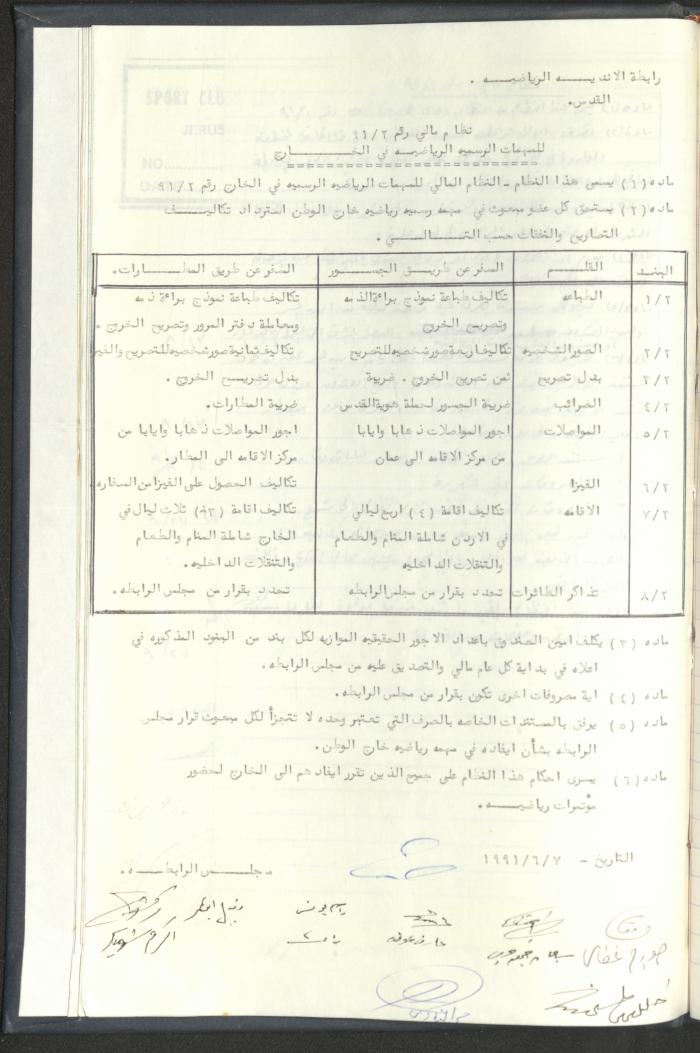 رابطة الانديــــه الرياضيــــه .
القدس.
نظام مالي رقم ٩١/٢
للمهمات الرسميه الرياضيــه في الخــــــــارج
ماده (١) يسمى هذا النظام - النظام المالي للمهمات الرياضيه الرسميه في الخارج رقم ٩١/٢
ماده (٢) يستحق كل عضو مبعوث في مهمه رسميه رياضيه خارج الوطن استرداد تكاليــــف
التصاريح والنفقات حسب التــــالـــــي .
البنـد القلـــــم السفر عن طريــق الجســـور السفر عن طريق المطــــارات.
١/٢ الطباعه تكاليف طباعة نموذج براءةالذمه تكاليف طباعة نموذج براءة ذمه
وتصريح الخروج ومعاملة دفتر المرور وتصريح الخروج .
٢/٢ الصور الشخصيه تكاليف اربعة صور شخصيه للتصريح تكاليف ثمانية صور شخصيه للتصريح والفيزا
٣/٢ بدل تصريح ثمن تصريح الخروج . ضريبة بدل تصريــح الخروج .
٤/٢ الضرائب ضريبة الجسور لحملة هوية القدس ضريبة المطارات.
٥/٢ المواصلات اجور المواصلات ذهابا وايابا اجور المواصلات ذهابا وايابا من
من مركز الاقامه الى عمان مركز الاقامه الى المطار.
٦/٢ الفيزا تكاليف الحصول على الفيزا من السفاره.
٧/٢ الاقامه تكاليف اقامة (٤) اربع ليالي تكاليف اقامة (٣) ثلاث ليال في
في الاردن شاملة المنام والطعام الخارج شاملة المنام والطعام
والتنقلات الداخليه والتنقلات الداخليه.
٨/٢ تذاكر الطائرات تحدد بقرار من مجلس الرابطه تحدد بقرار من مجلس الرابطه.
ماده (٣) يكلف امين الصندوق باعداد الاجور الحقيقيه الموازيه لكل بند من البنود المذكوره في
اعلاه في بداية كل عام مالي والتصديق عليه من مجلس الرابطه .
ماده (٤) اية مصروفات اخرى تكون بقرار من مجلس الرابطه .
ماده (٥) يرفق بالمستندات الخاصه بالصرف التي تعتبر وحده لا تتجزأ لكل مبعوث قرار مجلس
الرابطه بشأن ايفاده في مهمه رياضيه خارج الوطن .
ماده (٦) يسرى احكام هذا النظام على جميع الذين تقرر ايفادهم الى الخارج لحضور
مؤتمرات رياضيــــه .
التاريخ - ١٩٩١/٦/٧
مجلــــس الرابطــــه.